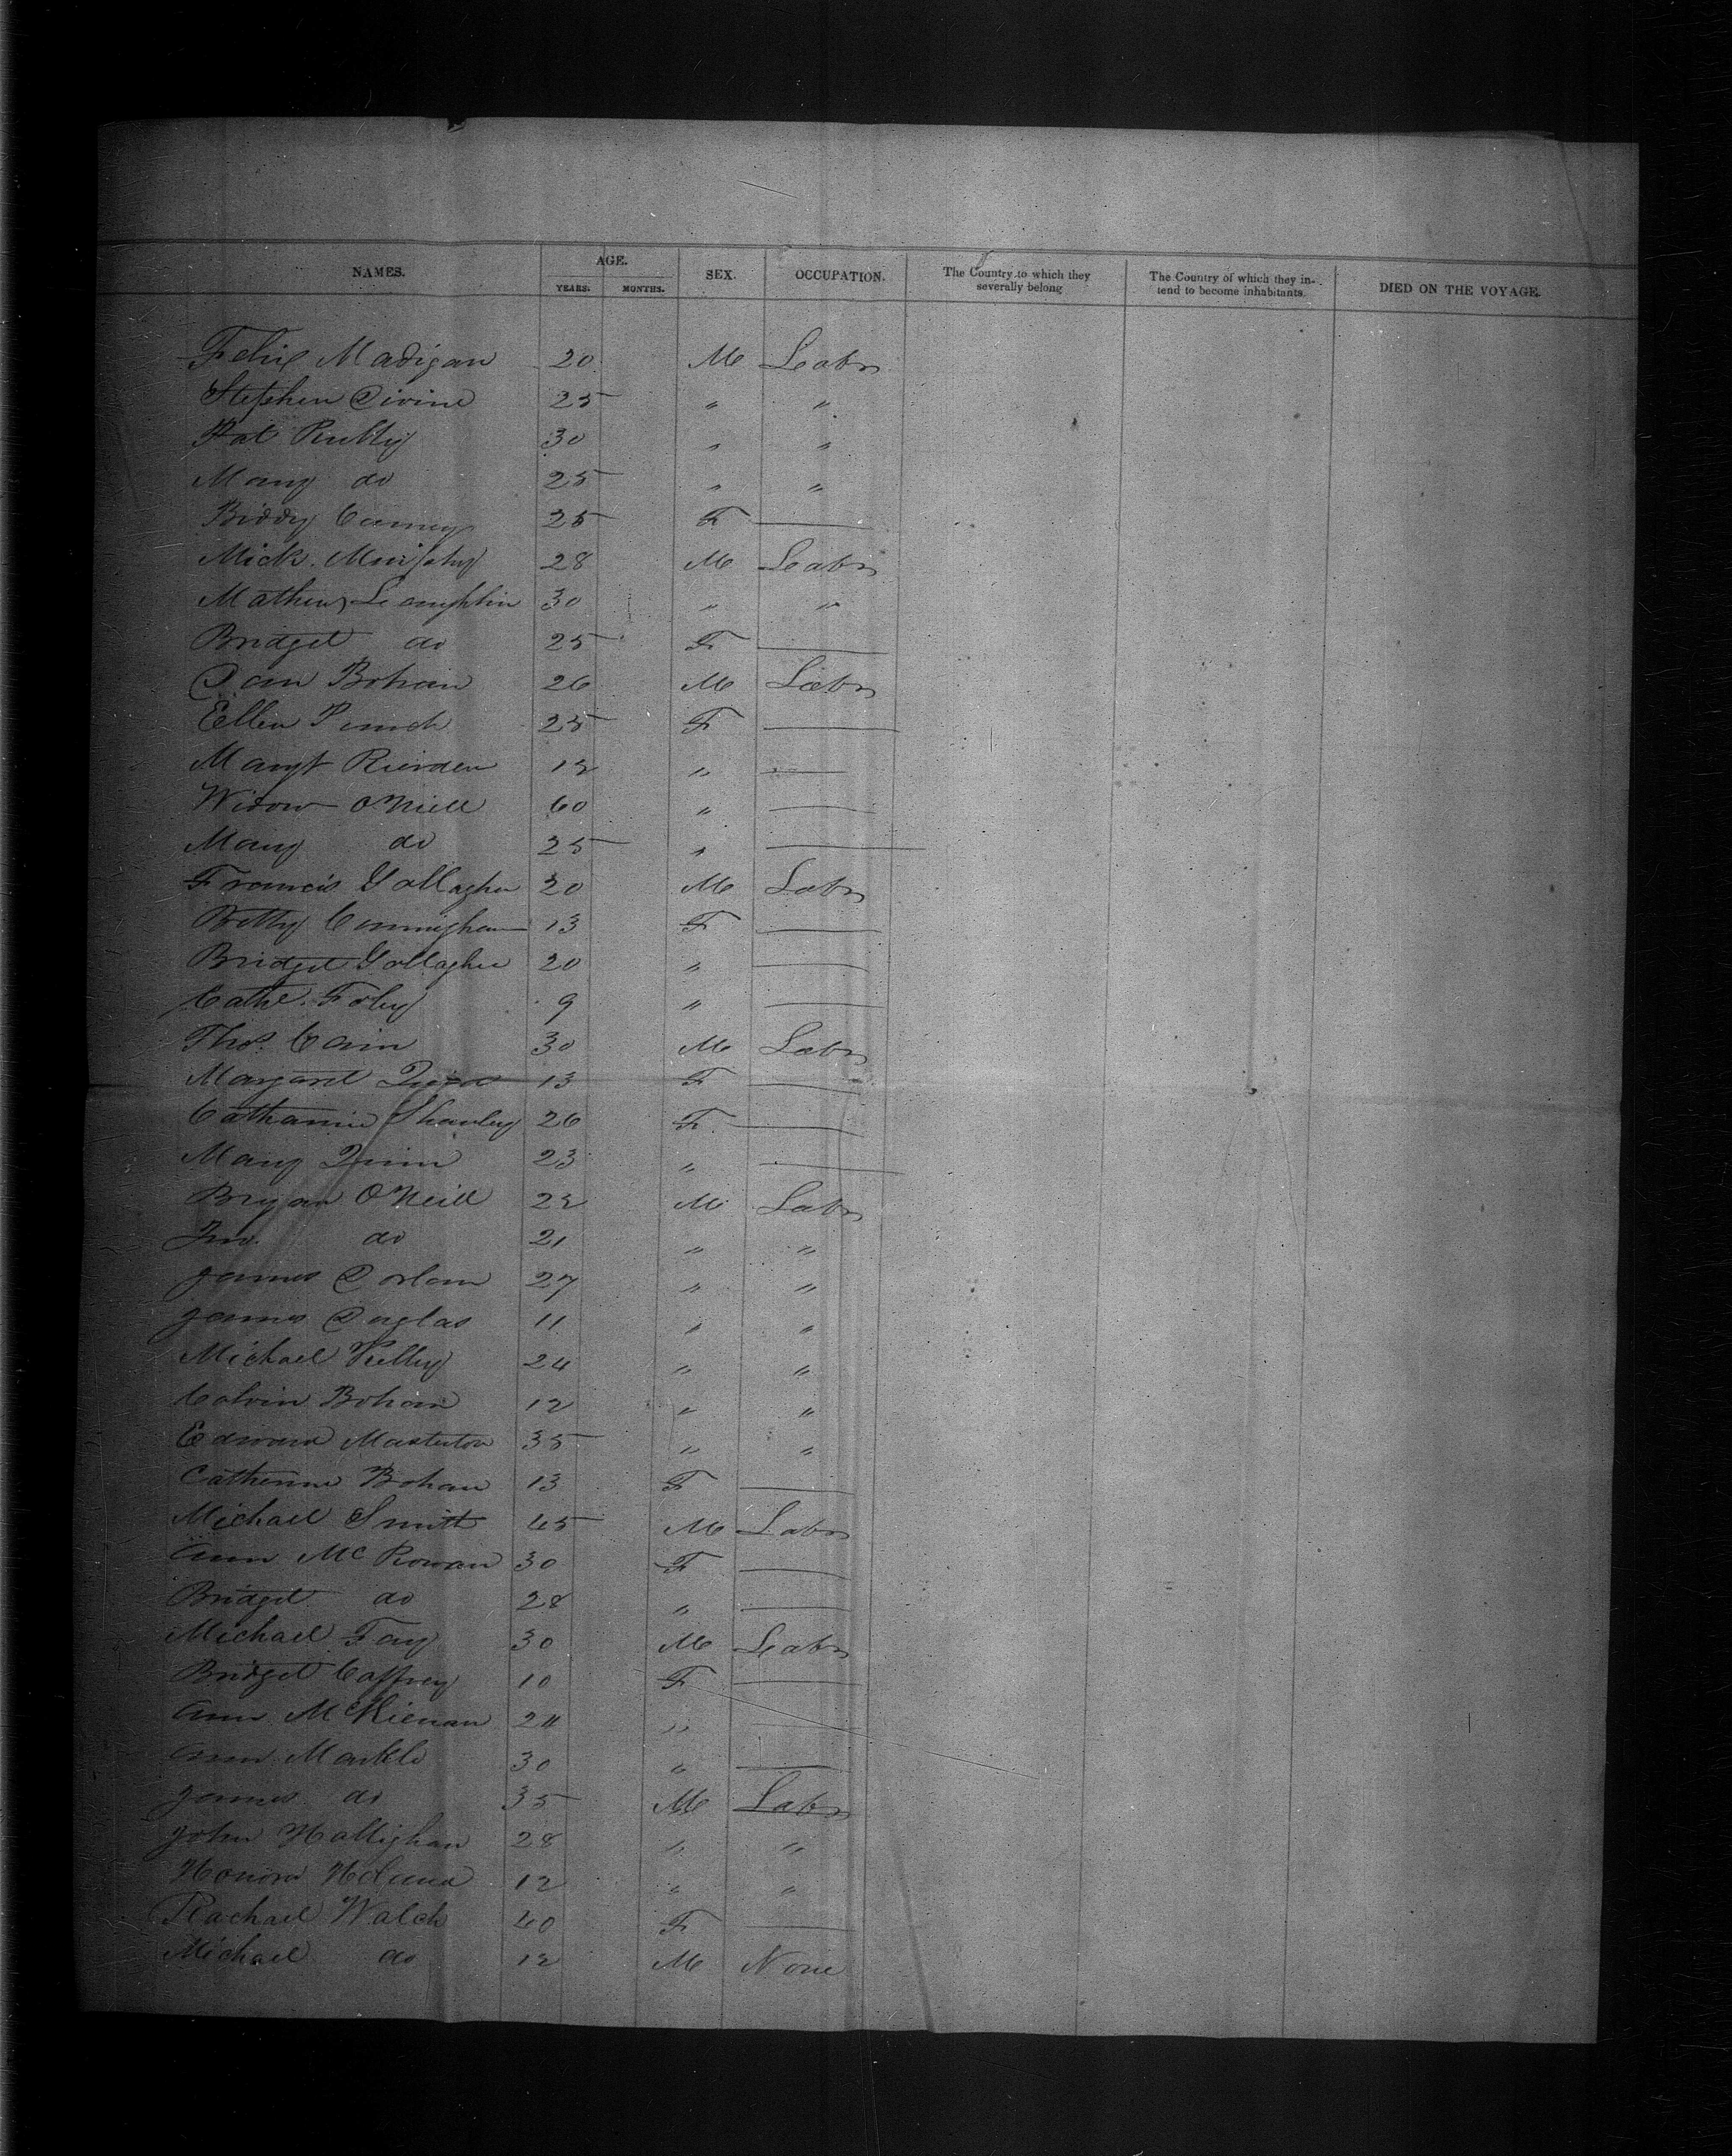 NAMES. AGE. SEX. OCCUPATION. The Country to which they severally belong The Country of which they intend to become inhabitants. DIED ON THE VOYAGE.
YEARS. MONTHS.
Felix Madigan 20 M Labr
Stephen Divine 25 " "
Pat Reilly 30 " "
Mary do 25 " "
Biddy 25 F —
Mick. Murphy 28 M Labr
Mathew Loughlin 30 " "
Bridget do 25 F —
Dan Bohan 26 M Labr
Ellen 25 F —
Margt Rierden 12 " —
Widow O'Niell 60 " —
Mary do 25 " —
Francis Gallagher 20 M Labr
Betty Cunnigham 13 F —
Bridget Gallagher 20 " —
Cathe. Foley 9 " —
Thos. Cain 30 M Labr
Margaret 13 F —
Catharine Shanley 26 F —
Mary Quinn 23 " —
Bryan O'Neill 22 M Labr
Jno. do 21 " "
James Dorlan 27 " "
James Duglas 11 " "
Michael Kelly 24 " "
Calvin Bohan 12 " "
Edward Masterton 35 " "
Catherine Bohan 13 F —
Michael Smith 45 M Labr
Ann McRowan 30 F —
Bridget do 28 " —
Michael Fay 30 M Labr
Bridget Caffrey 10 F —
Ann McKienan 24 " —
Ann 30 " —
James do 35 M Labr
John Hallighan 28 " "
Honora 12 " "
Rachael Walch 40 F —
Michael do 12 M None